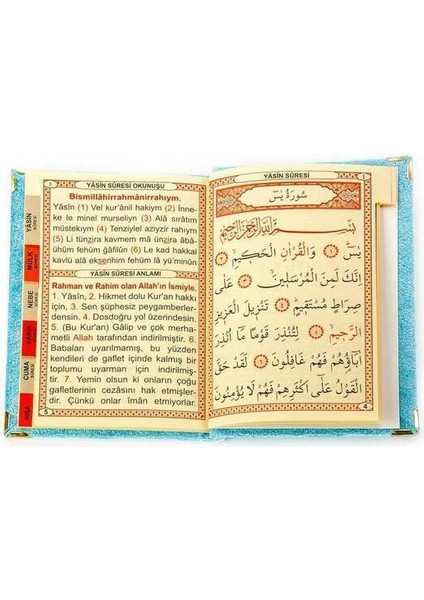 YÂSÎN SÛRESİ OKUNUŞU
Bismillâhirrahmânirrahıym.
Yâsîn (1) Vel kur'ânil hakiym (2) İnne-
ke le minel murseliyn (3) Alâ sırâtım
müstekıym (4) Tenziylel aziyzir rahıym
(5) Li tünzira kavmem mâ ünzira âbâ-
ühüm fehüm ğâfilûn (6) Le kad hakkal
kavlü alâ ekserihim fehüm lâ yü'minûn
YÂSÎN SÛRESİ ANLAMI
Rahman ve Rahim olan Allah'ın İsmiyle.
1. Yâsîn, 2. Hikmet dolu Kur'an hakkı
için, 3. Sen şüphesiz peygamberler-
densin. 4. Dosdoğru yol üzerindesin.
5. (Bu Kur'an) Gâlip ve çok merha-
metli Allah tarafından indirilmiştir.
6. Babaları uyarılmamış, bu yüzden
kendileri de gaflet içinde kalmış bir
toplumu uyarman için indirilmiş-
tir. 7. Yemin olsun ki onların çoğu
gafletlerinin cezasını hak etmişler-
dir. Çünkü onlar îmân etmiyorlar.
5
YÂSİN
SÛRESİ
MÜLK
SÛRESİ
NEBE
SÛRESİ
CUMA
SÛRESİ
YÂSÎN SÛRESİ
سُورَةُ يٰسٓ
بِسْمِ اللّٰهِ الرَّحْمٰنِ الرَّحِيمِ
يٰسٓ ﴿١﴾ وَالْقُرْاٰنِ الْحَكِيمِ ﴿٢﴾
اِنَّكَ لَمِنَ الْمُرْسَلِينَ ﴿٣﴾ عَلٰى
صِرَاطٍ مُسْتَقِيمٍ ﴿٤﴾ تَنْزِيلَ الْعَزِيزِ
الرَّحِيمِ ﴿٥﴾ لِتُنْذِرَ قَوْمًا مَٓا اُنْذِرَ
اٰبَٓاؤُهُمْ فَهُمْ غَافِلُونَ ﴿٦﴾ لَقَدْ حَقَّ
الْقَوْلُ عَلٰٓى اَكْثَرِهِمْ فَهُمْ لَا يُؤْمِنُونَ
4